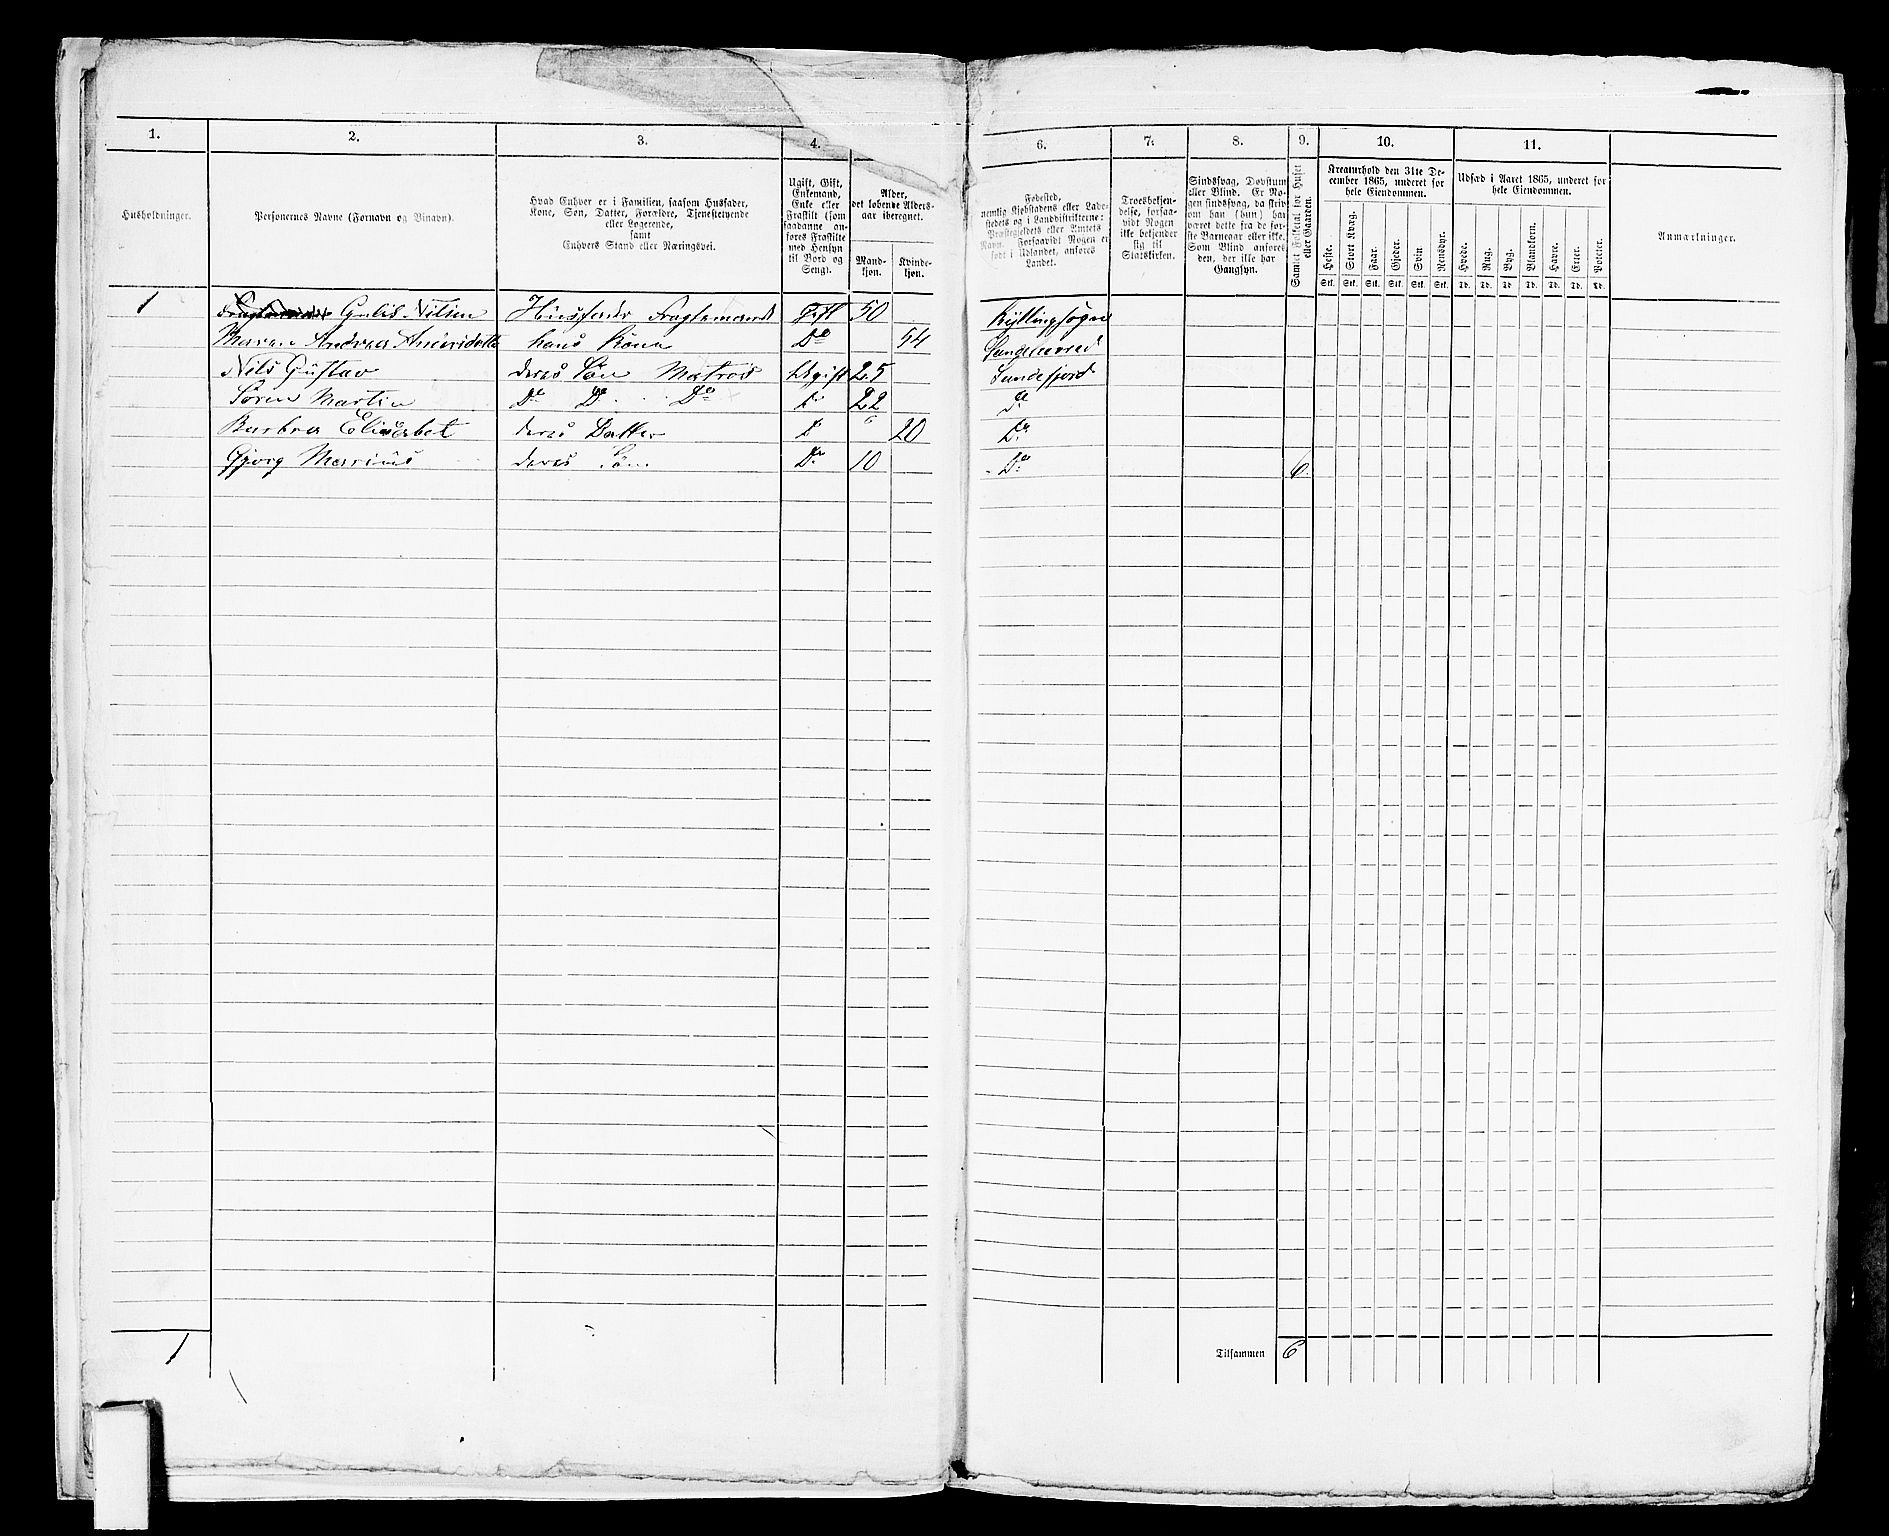 1. 2. 3. 4. 6. 7. 8. 9. 10. 11.
Husholdninger.
Personernes Navne (Fornavn og Tilnavn).
Hvad Enhver er i Familien, saasom Husfader,
Kone, Søn, Datter, Forældre, Tjenestetyende
eller Logerende,
samt
Enhvers Stand eller Næringsvei.
Ugift, Gift,
Enkemand,
Enke eller
Fraskilt (som
saadanne an-
føres Fraskilte
med Hensyn
til Bord og
Seng).
Alder,
det løbende Alders-
aar iberegnet.
Mand-
kjøn.
Kvinde-
kjøn.
Fødested,
nemlig Kjøbstadens eller Lade-
stedets og i Landdistrikterne:
Præstegjeldets eller Amtets
Navn. Forsaavidt Nogen er
født i Udlandet, anføres
Landet.
Troesbekjen-
delse, forsaa-
vidt Nogen
ikke bekjender
sig til
Statskirken.
Sindssvag, Døvstum
eller Blind. Er No-
gen sindssvag, da skriv
om han (hun) har
været dette fra de før-
ste Barneaar eller ikke.
Som Blind anføres
den, der ikke har
Gangsyn.
Samlet Folketal for Huset
eller Gaarden.
Kreaturhold den 31te De-
cember 1865, underet for
hele Eiendommen.
Heste. Stort Kvæg. Faar. Gjeder. Svin Rensdyr.
Stk. Stk. Stk. Stk. Stk. Stk.
Udsæd i Aaret 1865, underet for
hele Eiendommen.
Hvede. Rug. Byg. Blandkorn. Havre. Erter. Poteter.
Td. Td. Td. Td. Td. Td. Td.
Anmærkninger.
1 Nilsen Husfader Fragtemand Gift 50
Maren Andrea hans Kone Do 54
Nils Gustav deres Søn Matros Ugift 25 Sandefjord
Søren Martin Do Do Do Do 22 Do
Elisabet deres Datter Do 20 Do
Marius deres Søn Do 10 Do 6.
1
Tilsammen 6